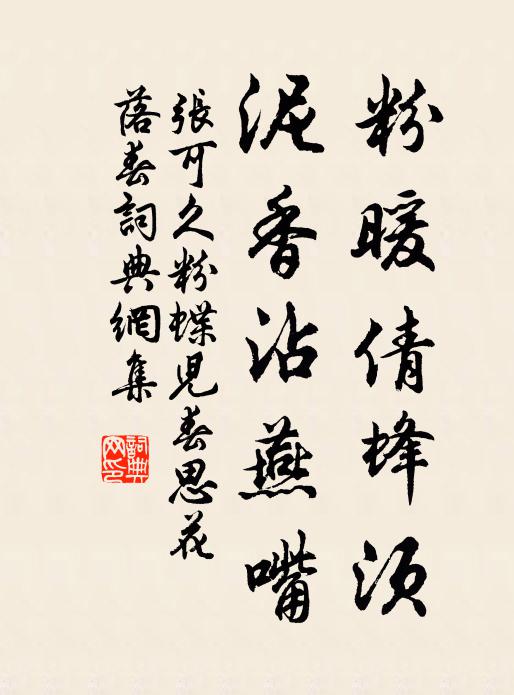 粉暖倩蜂須
泥香沾燕嘴
張可久粉蝶児春思花
落春詞典網集
詞典网印